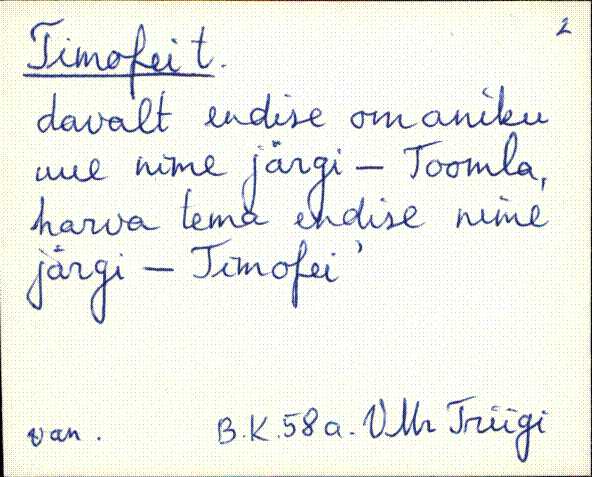 2
Timofei t.
davalt endise omaniku
uue nime järgi – Toomla,
harva tema endise nime
järgi – Timofei'
van. B.K.58a. VMr Triigi